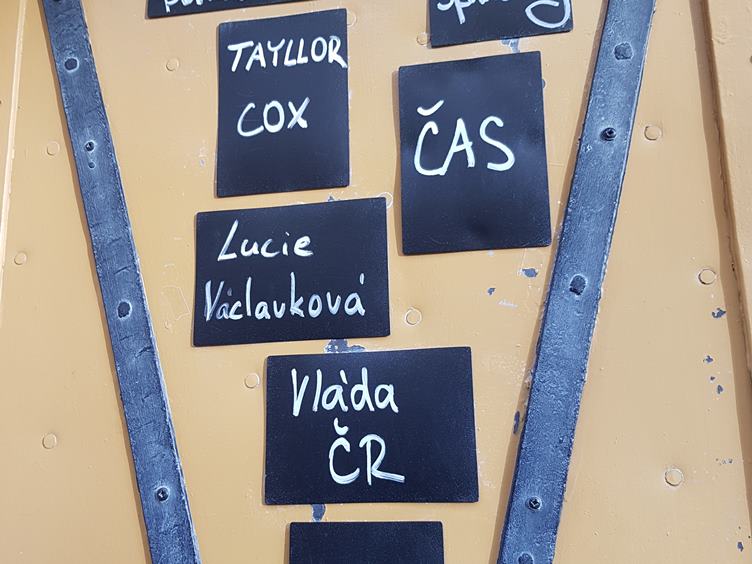 TAYLLOR
COX
ČAS
Lucie
Václavková
Vláda
ČR